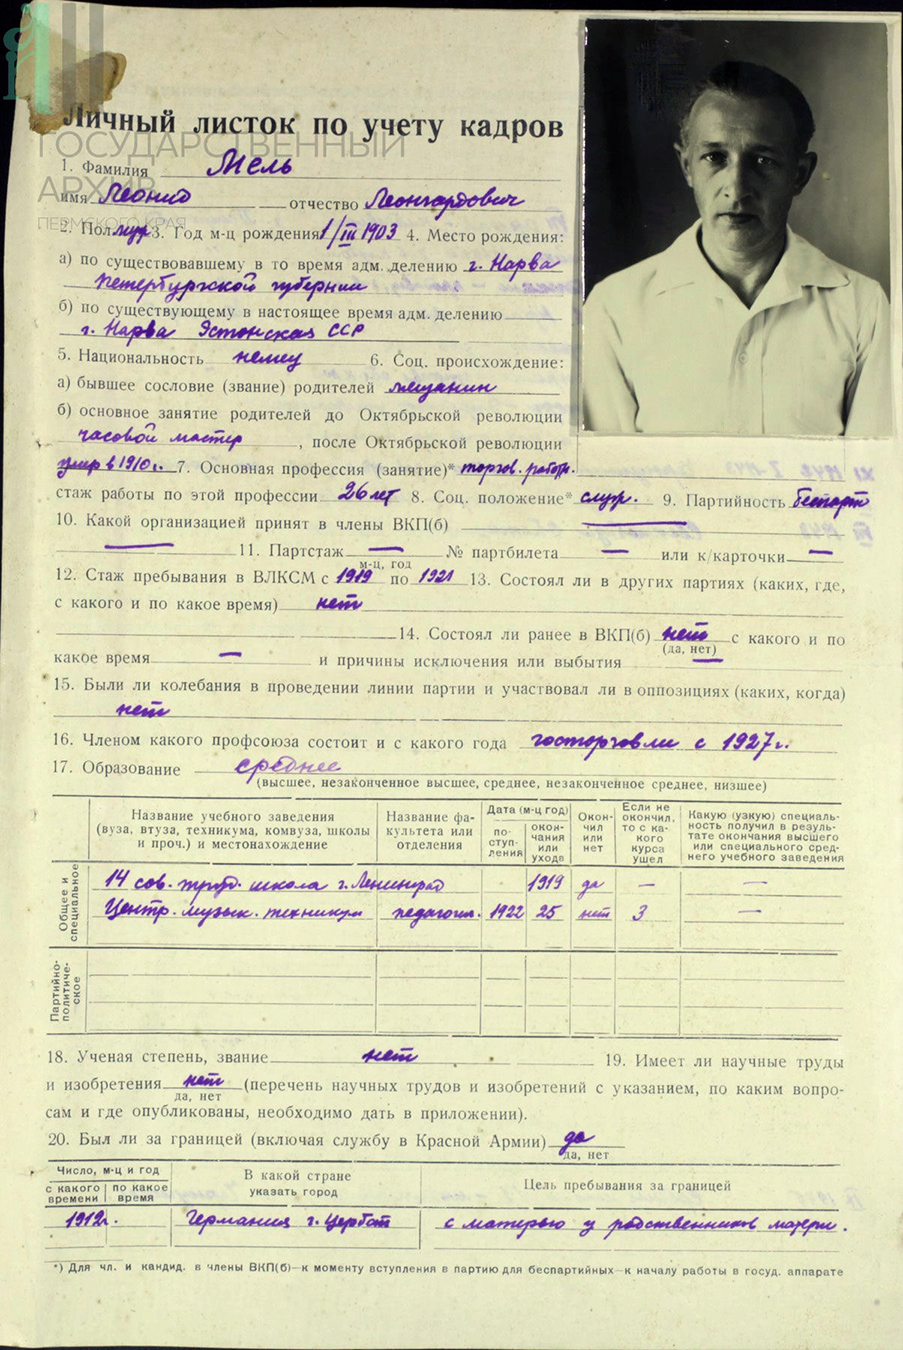 Личный листок по учету кадров
ГОСУДАРСТВЕННЫЙ
АРХИВ
ПЕРМСКОГО КРАЯ
1. Фамилия Мель
имя Леонид отчество Леонгардович
2. Пол муж 3. Год м-ц рождения 1/III 1903 4. Место рождения:
а) по существовавшему в то время адм. делению г. Нарва
Петербургской губернии
б) по существующему в настоящее время адм. делению
г. Нарва Эстонская ССР
5. Национальность немец 6. Соц. происхождение:
а) бывшее сословие (звание) родителей мещанин
б) основное занятие родителей до Октябрьской революции
часовой мастер, после Октябрьской революции
умер в 1910 г. 7. Основная профессия (занятие)* торгов. работн.
стаж работы по этой профессии 26 лет 8. Соц. положение* служ. 9. Партийность беспарт
10. Какой организацией принят в члены ВКП(б) —
— 11. Партстаж — № партбилета — или к/карточки —
м-ц, год
12. Стаж пребывания в ВЛКСМ с 1919 по 1921 13. Состоял ли в других партиях (каких, где,
с какого и по какое время) нет
14. Состоял ли ранее в ВКП(б) нет с какого и по
(да, нет)
какое время — и причины исключения или выбытия —
15. Были ли колебания в проведении линии партии и участвовал ли в оппозициях (каких, когда)
нет
16. Членом какого профсоюза состоит и с какого года госторговли с 1927 г.
17. Образование среднее
(высшее, незаконченное высшее, среднее, незаконченное среднее, низшее)
Название учебного заведения (вуза, втуза, техникума, комвуза, школы и проч.) и местонахождение
Название факультета или отделения
Дата (м-ц год)
поступления
окончания или ухода
Окончил или нет
Если не окончил, то с какого курса ушел
Какую (узкую) специальность получил в результате окончания высшего или специального среднего учебного заведения
Общее и специальное
14 сов. труд. школа г. Ленинград 1919 да — —
Центр. музык. техникум педагогич. 1922 25 нет 3 —
Партийно-политическое
18. Ученая степень, звание нет 19. Имеет ли научные труды
и изобретения нет (перечень научных трудов и изобретений с указанием, по каким вопро-
да, нет
сам и где опубликованы, необходимо дать в приложении).
20. Был ли за границей (включая службу в Красной Армии) да
да, нет
Число, м-ц и год
с какого времени
по какое время
В какой стране
указать город
Цель пребывания за границей
1912 г. Германия г. Цербст с матерью у родственников матери.
*) Для чл. и кандид. в члены ВКП(б)—к моменту вступления в партию для беспартийных—к началу работы в госуд. аппарате